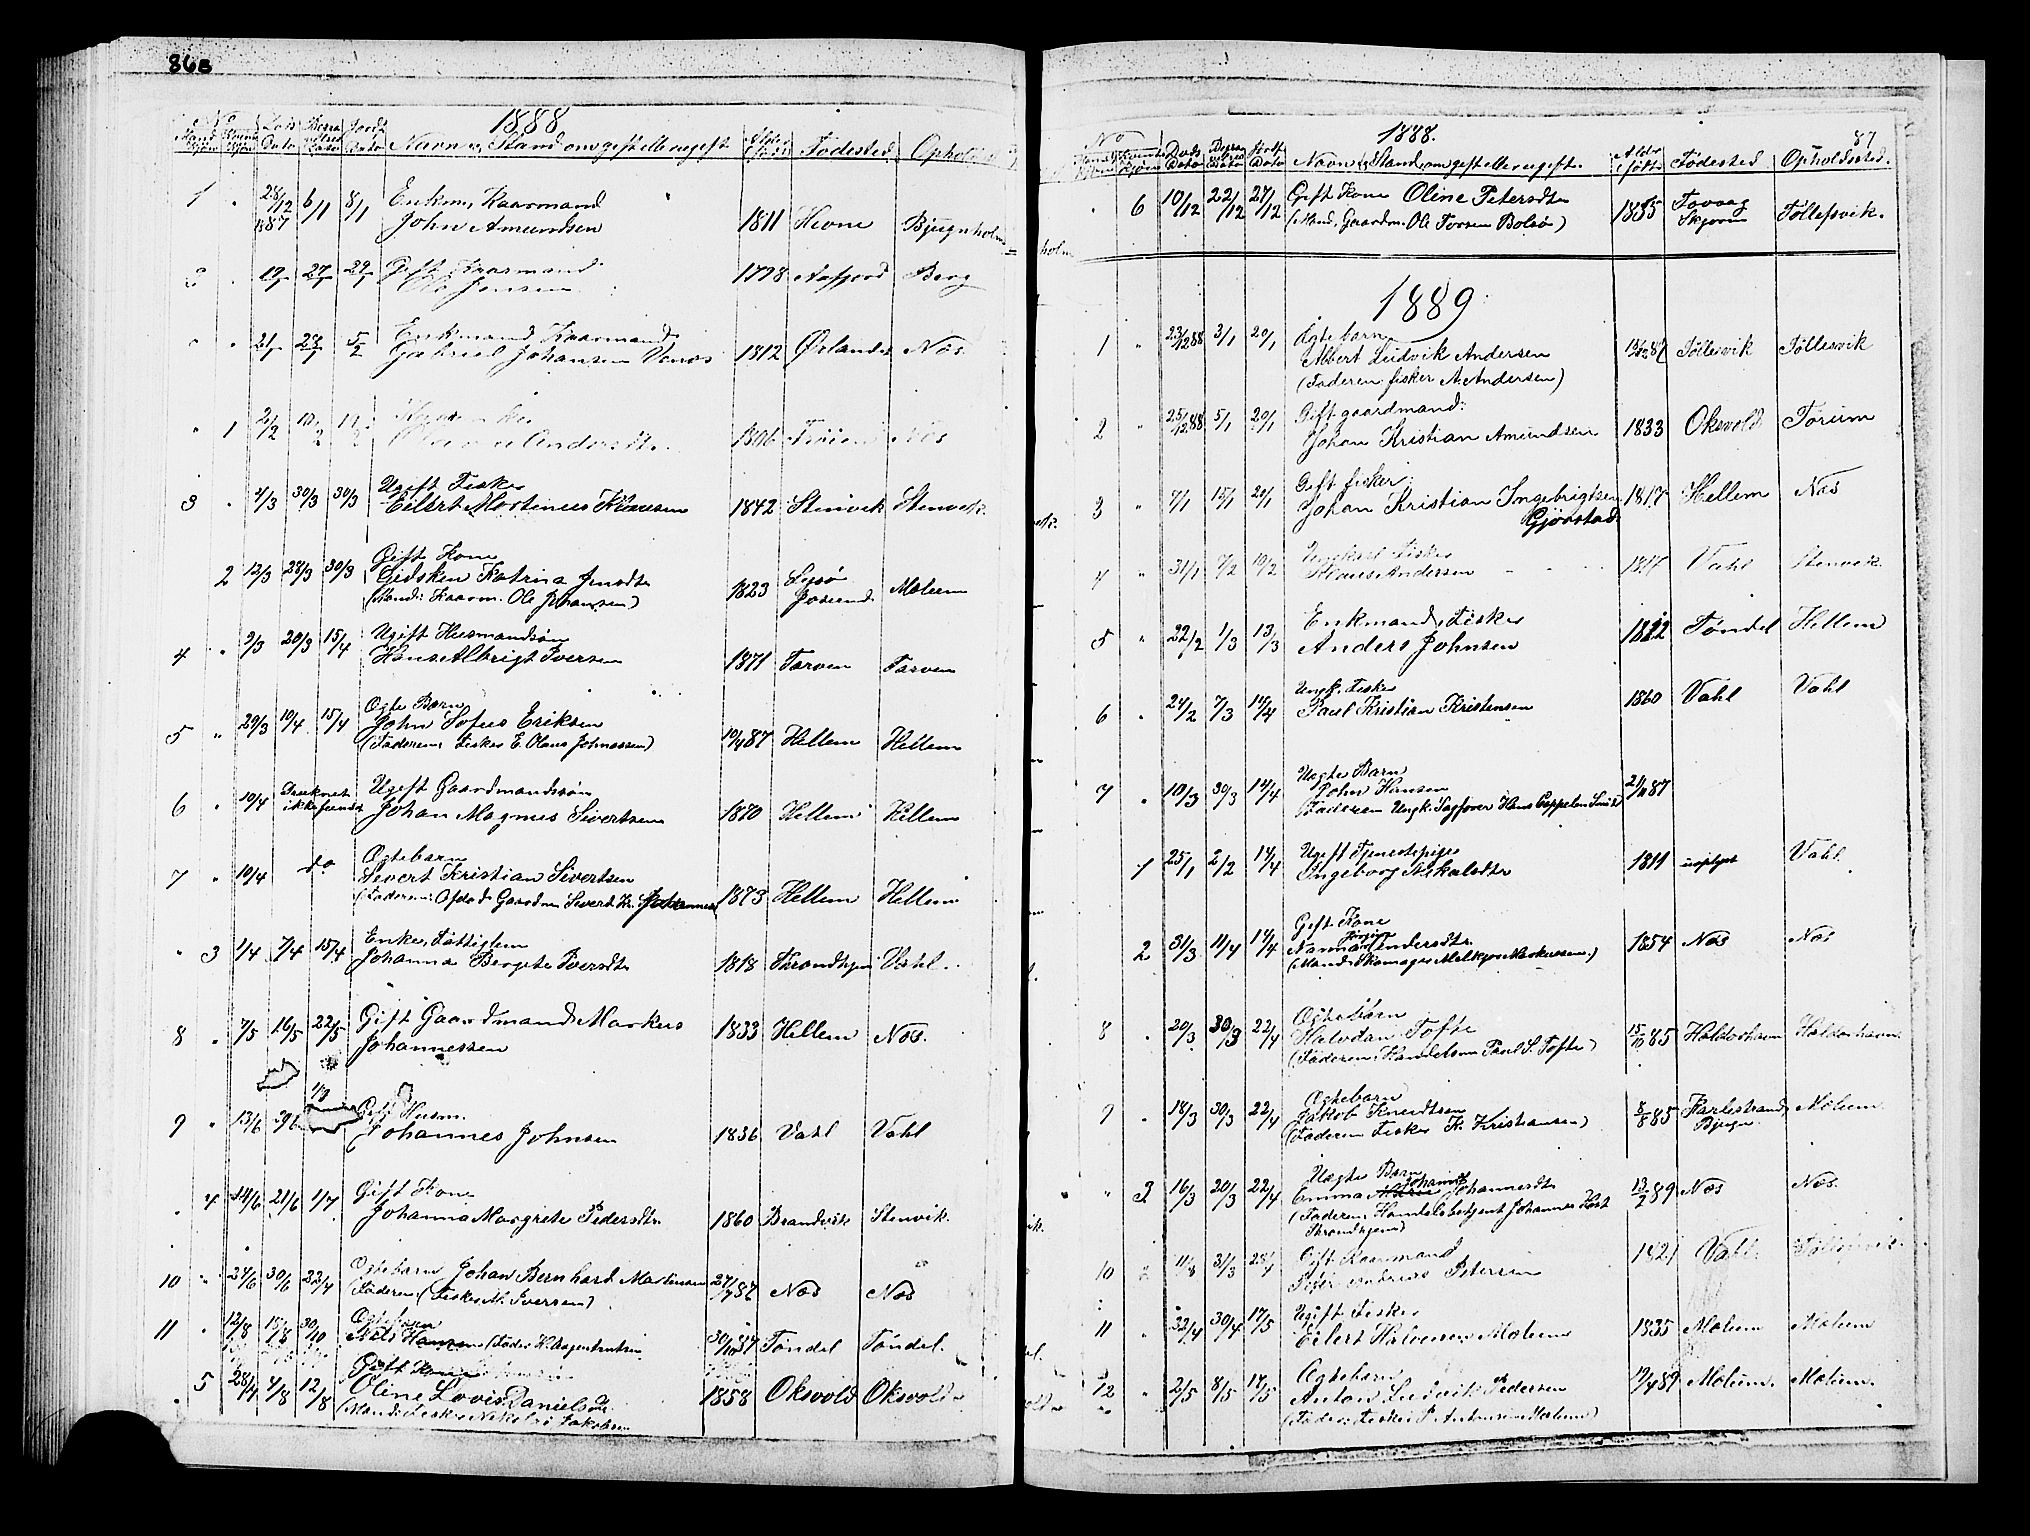 86B
1888
No
Mandkjøn Kvindekjøn Døds Dato Begravelses Dato Jordf. Dato Navn og Stand om gift eller ugift Alder født Fødested
1 " 28/12 1887 6/1 8/1 Enkm. Kaarmand
John Amundsen 1811 Hevne Bjugnholm
" 27/1 29/1 Gift Kaarmand
Ole Jensen 1798 Aafjord Berg
" " 5/2 Enkmand Kaarmand
Gabriel Johansen 1812 Ørlandet Næs
" 1 2/2
Andersdtr. 1806 Næs
3 " 4/3 30/3 30/3 Ugift Fisker
Eilert Martinus Klausen 1842 Stenvik Stenvik.
2 12/3 28/3 30/3 Gift Kone
Gidsken Katrina Jensdtr
(Mand: Kaarm. Ole Johansen) 1823 Lysø Jøssund Mælum
4 " 9/3 20/3 15/4 Ugift Husmandsøn
Hans Albrigt Iversen 1871 Tarven Tarven
5 " 29/3 10/4 15/4 Ægte Barn
John Sofus Eriksen
(Faderen: Fisker E. Olaus Johnassen) 10/4 87 Hellem Hellem
6 " 10/4 Druknet ikke fundet Ugift Gaardmandssøn
Johan Magnus Sivertsen 1870 Hellem Hellem
7 " 10/4 do Ægtebarn
Sivert Kristian Sivertsen
(Faderen: Afdøde Gaardm. Sivert Kr. Johannes 1873 Hellem Hellem
" 3 1/4 7/4 15/4 Enke, Fattiglem
Johanna Bergete Iversdtr 1818 Throndhjem Vahl.
8 " 7/5 16/5 22/5 Gift Gaardmand Markus
Johannessen 1833 Hellem Næs.
9 " 13/6 1/7 Gift Husm.
Johannes Johnsen 1836 Vahl Vahl
" 4 14/6 21/6 1/7 Gift Kone
Johanna Margrete Pedersdtr. 1860 Brandvik Stenvik.
10 " 24/6 30/6 22/4 Ægtebarn Johan Bernhard Martinsen
Faderen (Fisker M. Iversen) 87 Næs Næs
11 " 12/8 18/8 30/10 Ægtebarn
Nils Hansen (Fader H. Aagentsen 30/10 87 Tøndel Tøndel.
" 5 28/7 4/8 12/8 Gift Kone
Oline Lovise Danielsdtr
(Mand: Fisker Nikolai Jakobsen 1858 Oksvold Oksvold
1888.
87
No
Mandkjøn Kvindekjøn Døds Dato Begravelses Dato Jordf. Dato Navn og Stand, om gift eller ugift. Alder født Fødested Opholdssted.
" 6 10/12 22/12 27/12 Gift Kone Oline Petersdtr
(Mand: Gaardm. Ole Torsen Bolsø) 1835 Tøllefsvik.
1889
1 " 23/12 88 3/1 20/1 Ægtebarn
Albert Ludvik Andersen
(Faderen: fisker A. Andersen) 87 Tøllesvik Tøllesvik
2 " 25/12 88 5/1 20/1 Gift gaardmand:
Johan Kristian Amundsen 1833 Oksvold Tørum
3 " 7/1 15/1 20/1 Gift fisker:
Johan Kristian Ingebrigtsen
Gjørstad 1817 Hellem Næs
4 " 31/1 7/2 10/2 Ungkarl Fisker
Klaus Andersen Vahl Stenvik.
5 " 22/2 1/3 13/3 Enkmand, Fisker
Anders Johnsen 1812 Tøndel Hellem
6 " 24/2 7/3 14/4 Ungk. Fisker
Paul Kristian Kristensen 1860 Vahl Vahl
7 " 10/3 30/3 14/4 Uægte Barn
John Hansen
(Faderen Ungk. Sagfører Hans Coppelen 87
1 25/1 2/2 14/4 Ugift Tjenestepige
Ingeborg Nikolsdtr 1811 uoplyst Vahl.
2 31/3 11/4 14/4 Gift Kone
Andersdtr.
(Mand: Skomager Melkjor Markussen.) 1854 Næs Næs
8 " 20/3 30/3 22/4 Ægtebørn
Halvdan Tofte
(Faderen: Handelsm Paul S. Tofte) 15/10 85 Haldorhavn Haldorhavn.
9 " 18/3 30/3 22/4 Ægtebarn
Jakob Knudtsen
(Faderen Fisker K. Kristiansen) 8/8 85 Karlestrand Bjugn Mælum.
" 3 16/3 20/3 22/4 Uægte Barn
Emma Johanna Johannesdtr
(Faderen Handelsbetjent Johannes
Throndhjem) 13/2 89 Næs Næs.
10 " 31/3 28/4 Gift Kaarmand
Peter Andreas Petersen 1821 Vahl.
11 " 22/4 30/4 17/5 Ugift Fisker
Eilert Halvorsen Mælum 1835 Mælum Mælum
12 " 2/5 8/5 17/5 Ægtebarn
Anton Ludvik Pedersen
(Fader: Fisker P. Antonsen Mælum) 89 Mælum. Mælum.